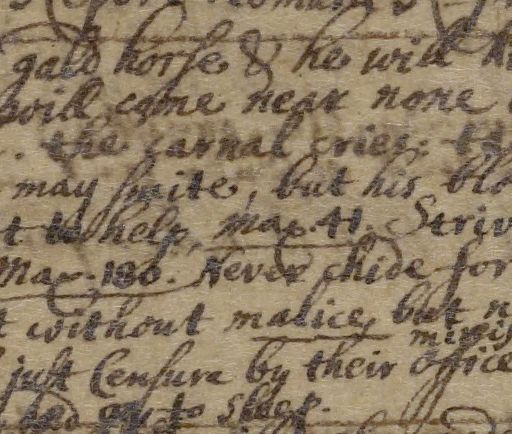 gald horse & he will
will come near none
. the carnal cries:
may smite, but his blo
t to help. max. 41. Striv
Max. 186. Never chide for
t without malice, but n
minis
just Censure by their office